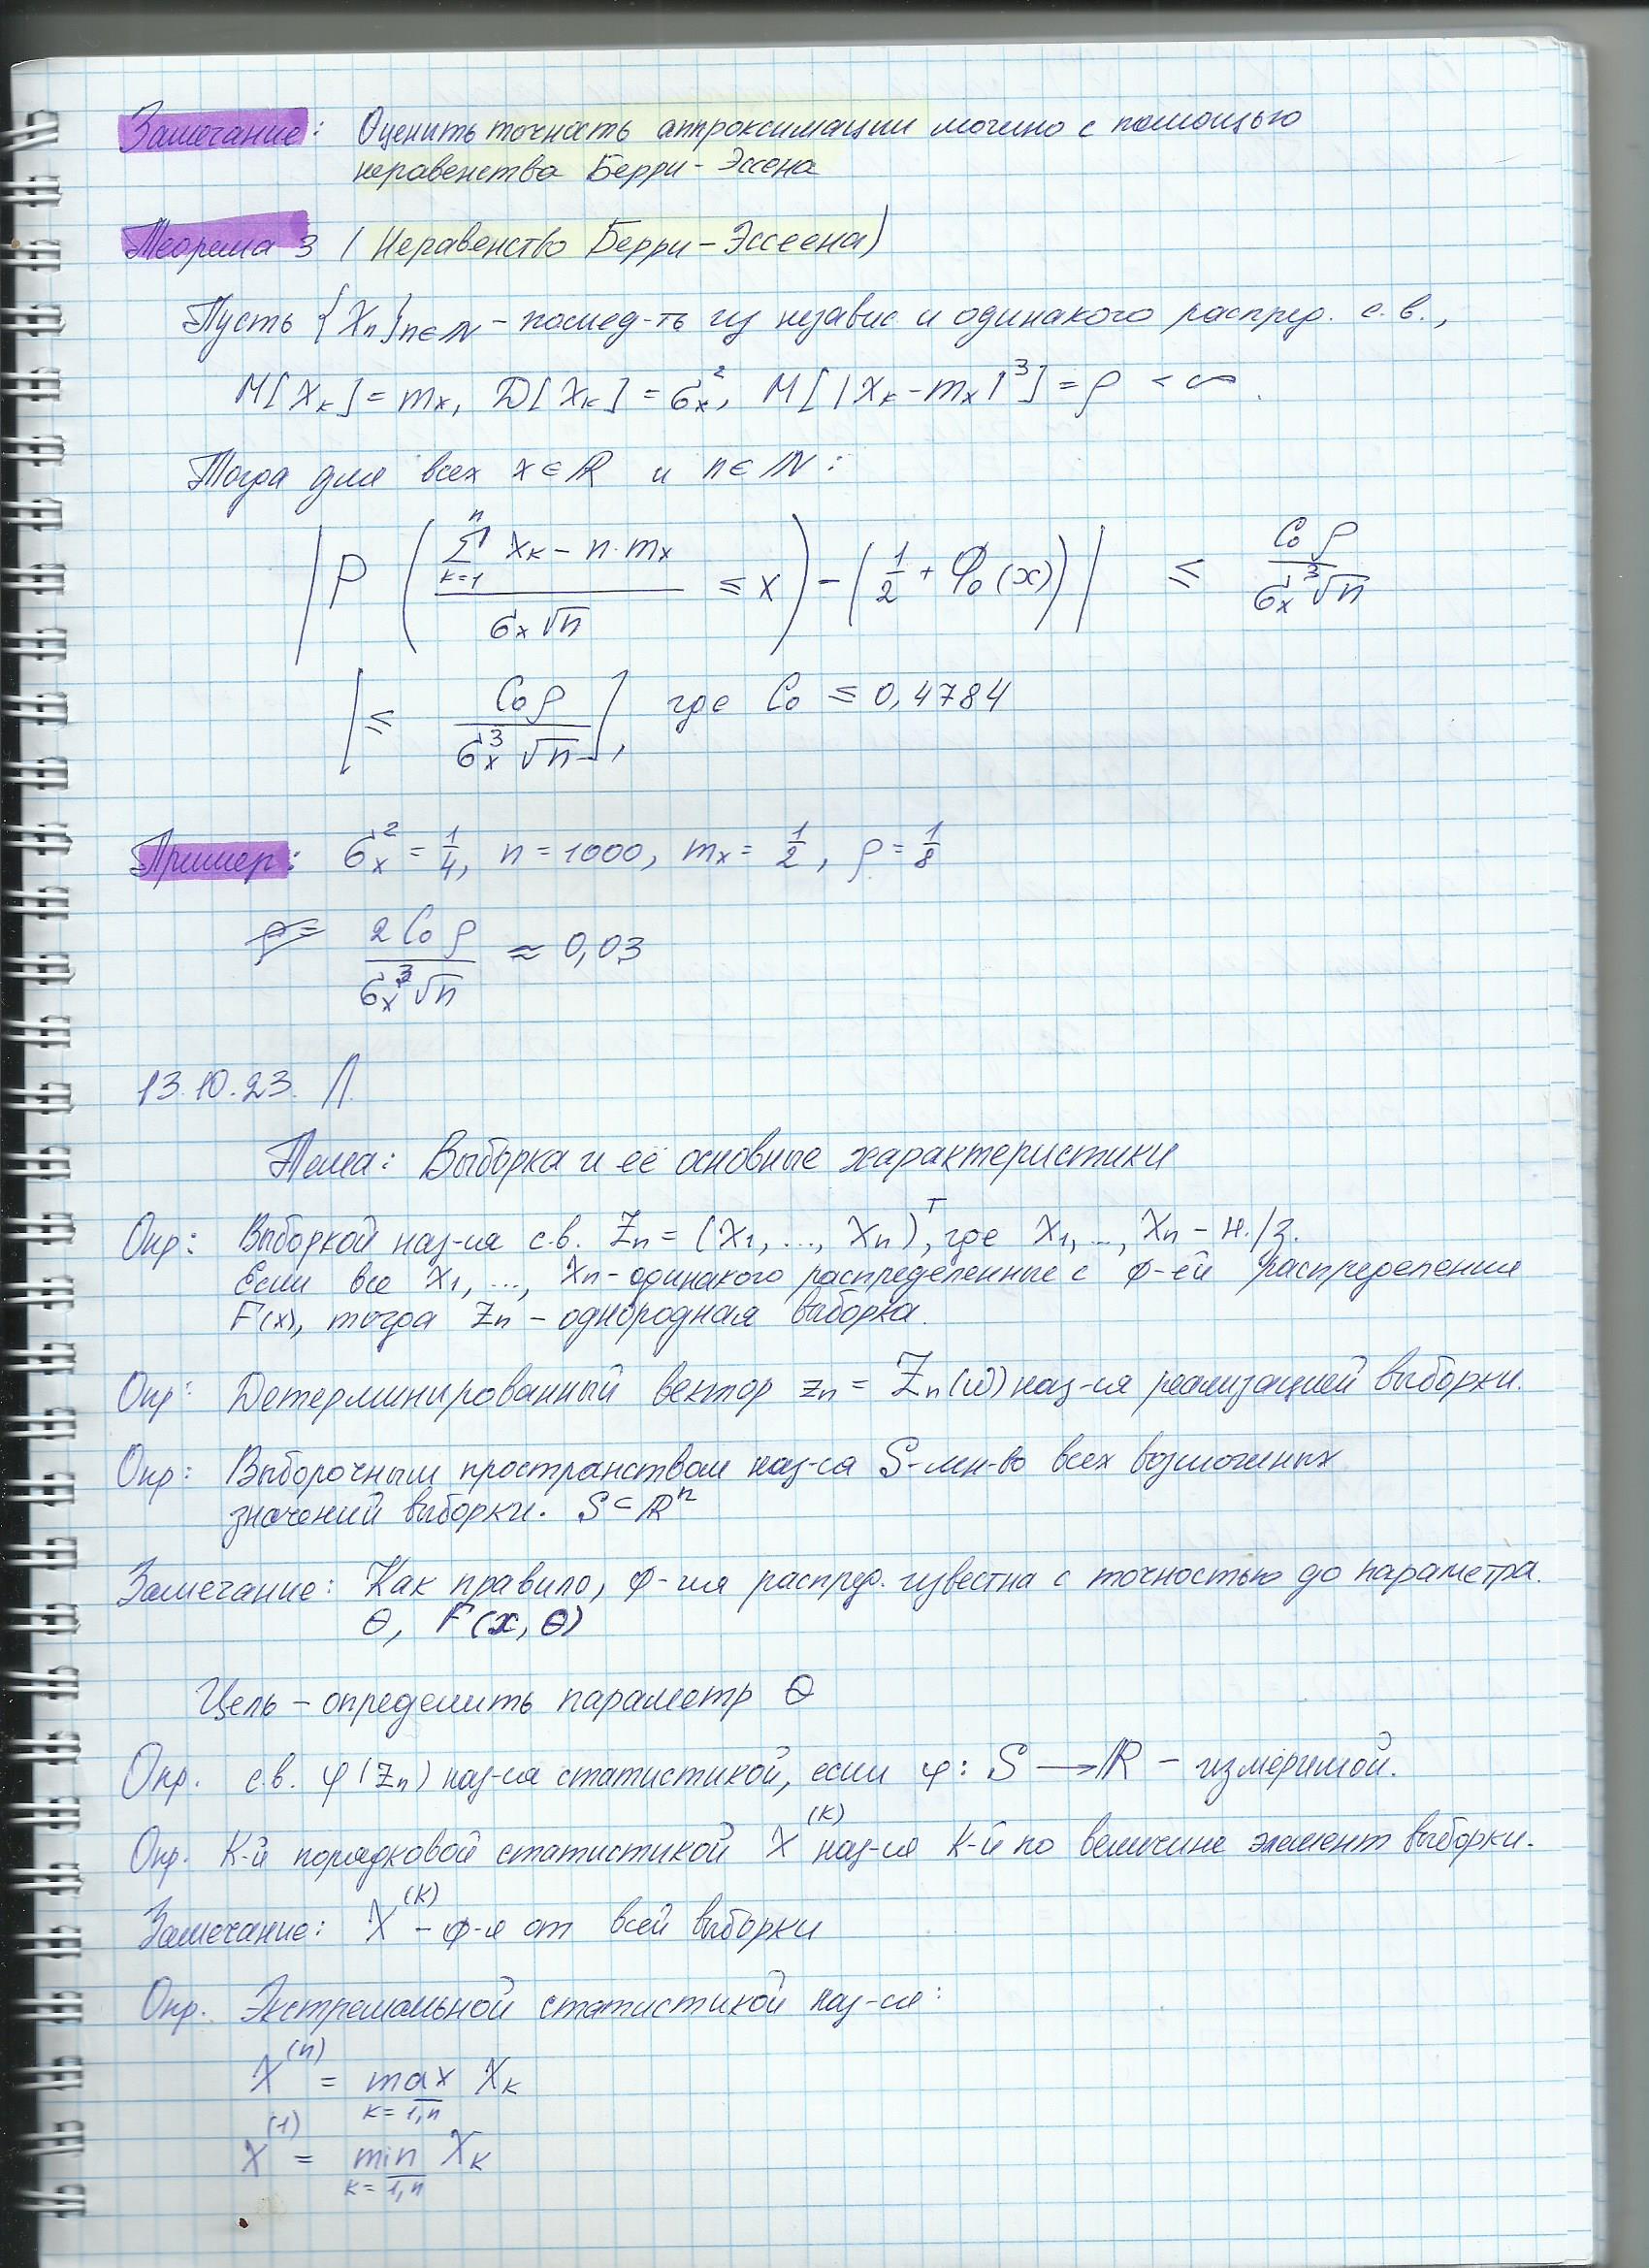 Замечание: Оценить точность аппроксимации можно с помощью
неравенства Берри-Эссена
Теорема 3 (Неравенство Берри-Эссеена)
Пусть {Xn}n∈N - послед-ть из независ. и одинакого распред. с.в.,
M[Xk] = mx, D[Xk] = σx², M[|Xk - mx|³] = ρ < ∞.
Тогда для всех x∈R и n∈N:
|P((∑_{k=1}^{n} Xk - n·mx)/(σx√n) ≤ x) - (1/2 + Φ0(x))| ≤ C0ρ/(σx³√n)
[≤ C0ρ/(σx³√n)], где C0 ≤ 0,4784
Пример: σx² = 1/4, n = 1000, mx = 1/2, ρ = 1/8
ρ = 2C0ρ/(σx³√n) ≈ 0,03
13.10.23. Л.
Тема: Выборка и её основные характеристики
Опр: Выборкой наз-ся с.в. Zn = (X1, ..., Xn)ᵀ, где X1, ..., Xn - н./з.
Если все X1, ..., Xn - одинакого распределенные с ф-ей распределения
F(x), тогда Zn - однородная выборка.
Опр: Детерминированный вектор zn = Zn(ω) наз-ся реализацией выборки.
Опр: Выборочным пространством наз-ся S - мн-во всех возможных
значений выборки. S⊂Rⁿ
Замечание: Как правило, ф-ия распред. известна с точностью до параметра.
θ, F(x, θ)
Цель - определить параметр θ
Опр. с.в. φ(Zn) наз-ся статистикой, если φ: S → R - измеримой.
Опр. К-й порядковой статистикой X^(k) наз-ся К-й по величине элемент выборки.
Замечание: X^(k) - ф-я от всей выборки
Опр. Экстремальной статистикой наз-ся:
X^(n) = max_{k=1,n} Xk
X^(1) = min_{k=1,n} Xk